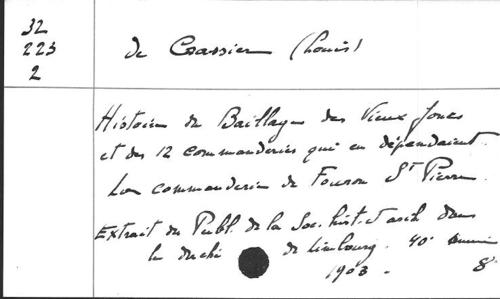 32
223
2
de Crassier (Louis)
Histoire du Bailliage des Vieux Joncs
et des 12 commanderies qui en dépendaient.
La commanderie de Fouron St Pierre
Extrait des Publ. de la Soc. hist. et arch. dans
le duché de Limbourg. 40e
1903. 8°